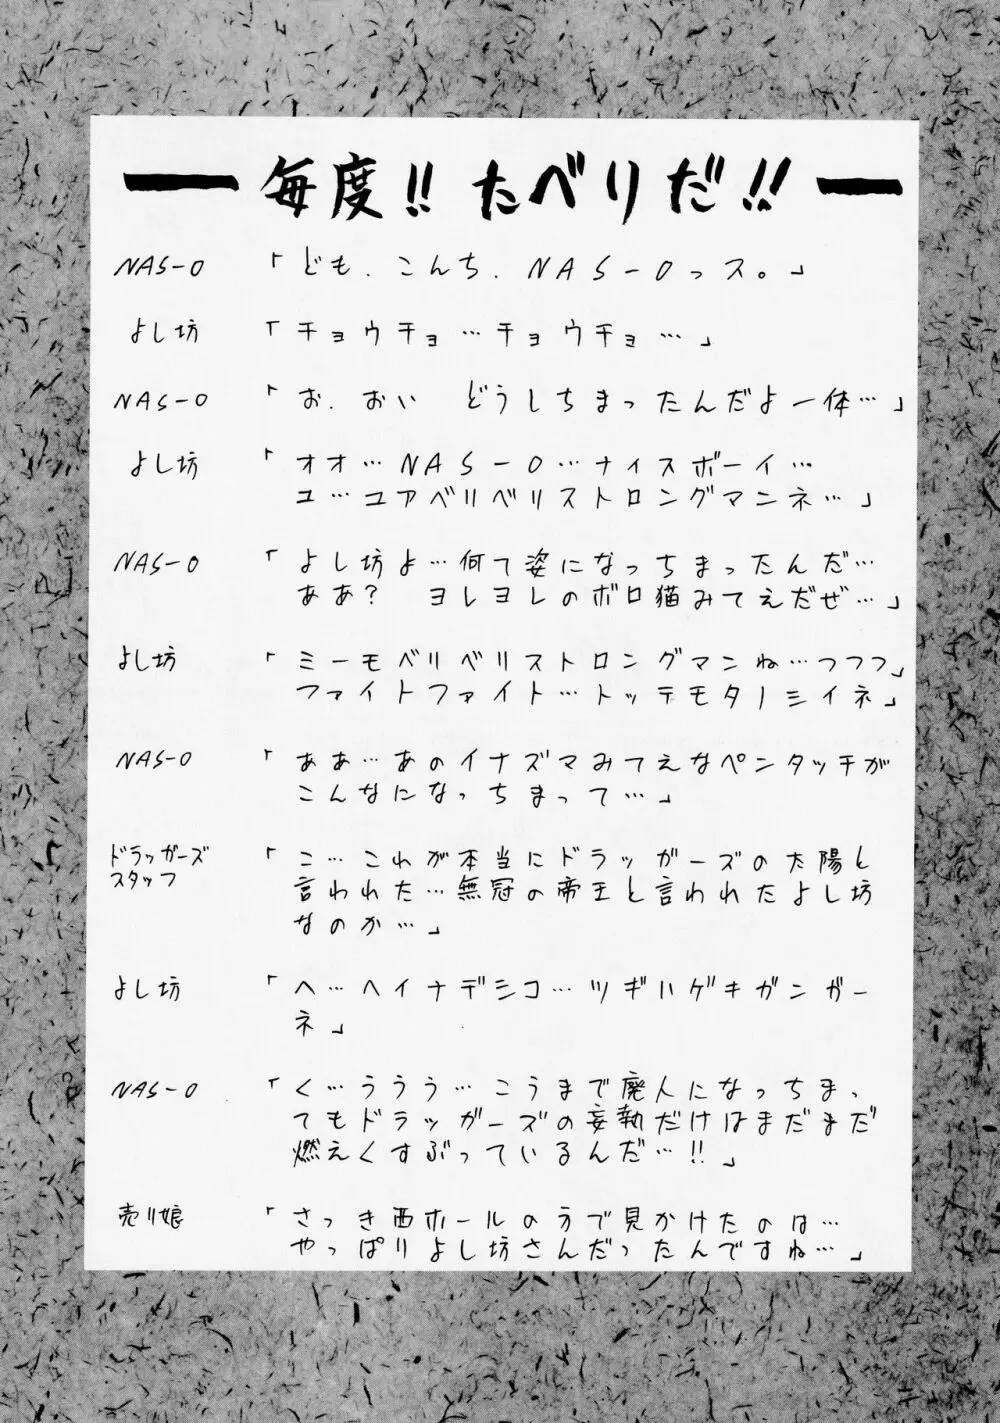 毎度!! たべりだ!!
NAS-O 「ども、こんち、NAS-Oっス。」
よし坊 「チョウチョ…チョウチョ…」
NAS-O 「お、おい どうしちまったんだよ一体…」
よし坊 「オオ…NAS-O…ナイスボーイ…
ユ…ユアベリベリストロングマンネ…」
NAS-O 「よし坊よ…何て姿になっちまったんだ…
ああ? ヨレヨレのボロ猫みてえだぜ…」
よし坊 「ミーモベリベリストロングマンね…つつつ」
ファイトファイト…トッテモタノシイネ」
NAS-O 「ああ…あのイナズマみてえなペンタッチが
こんなになっちまって…」
ドラッガーズ
スタッフ 「こ…これが本当にドラッガーズの太陽と
言われた…無冠の帝王と言われたよし坊
なのか…」
よし坊 「ヘ…ヘイナデシコ…ツギハゲキガンガー
ネ」
NAS-O 「く…ううう…こうまで廃人になっちまっ
てもドラッガーズの妄執だけはまだまだ
燃えくすぶっているんだ…!!」
売り娘 「さっき西ホールの方で見かけたのは…
やっぱりよし坊さんだったんですね…」